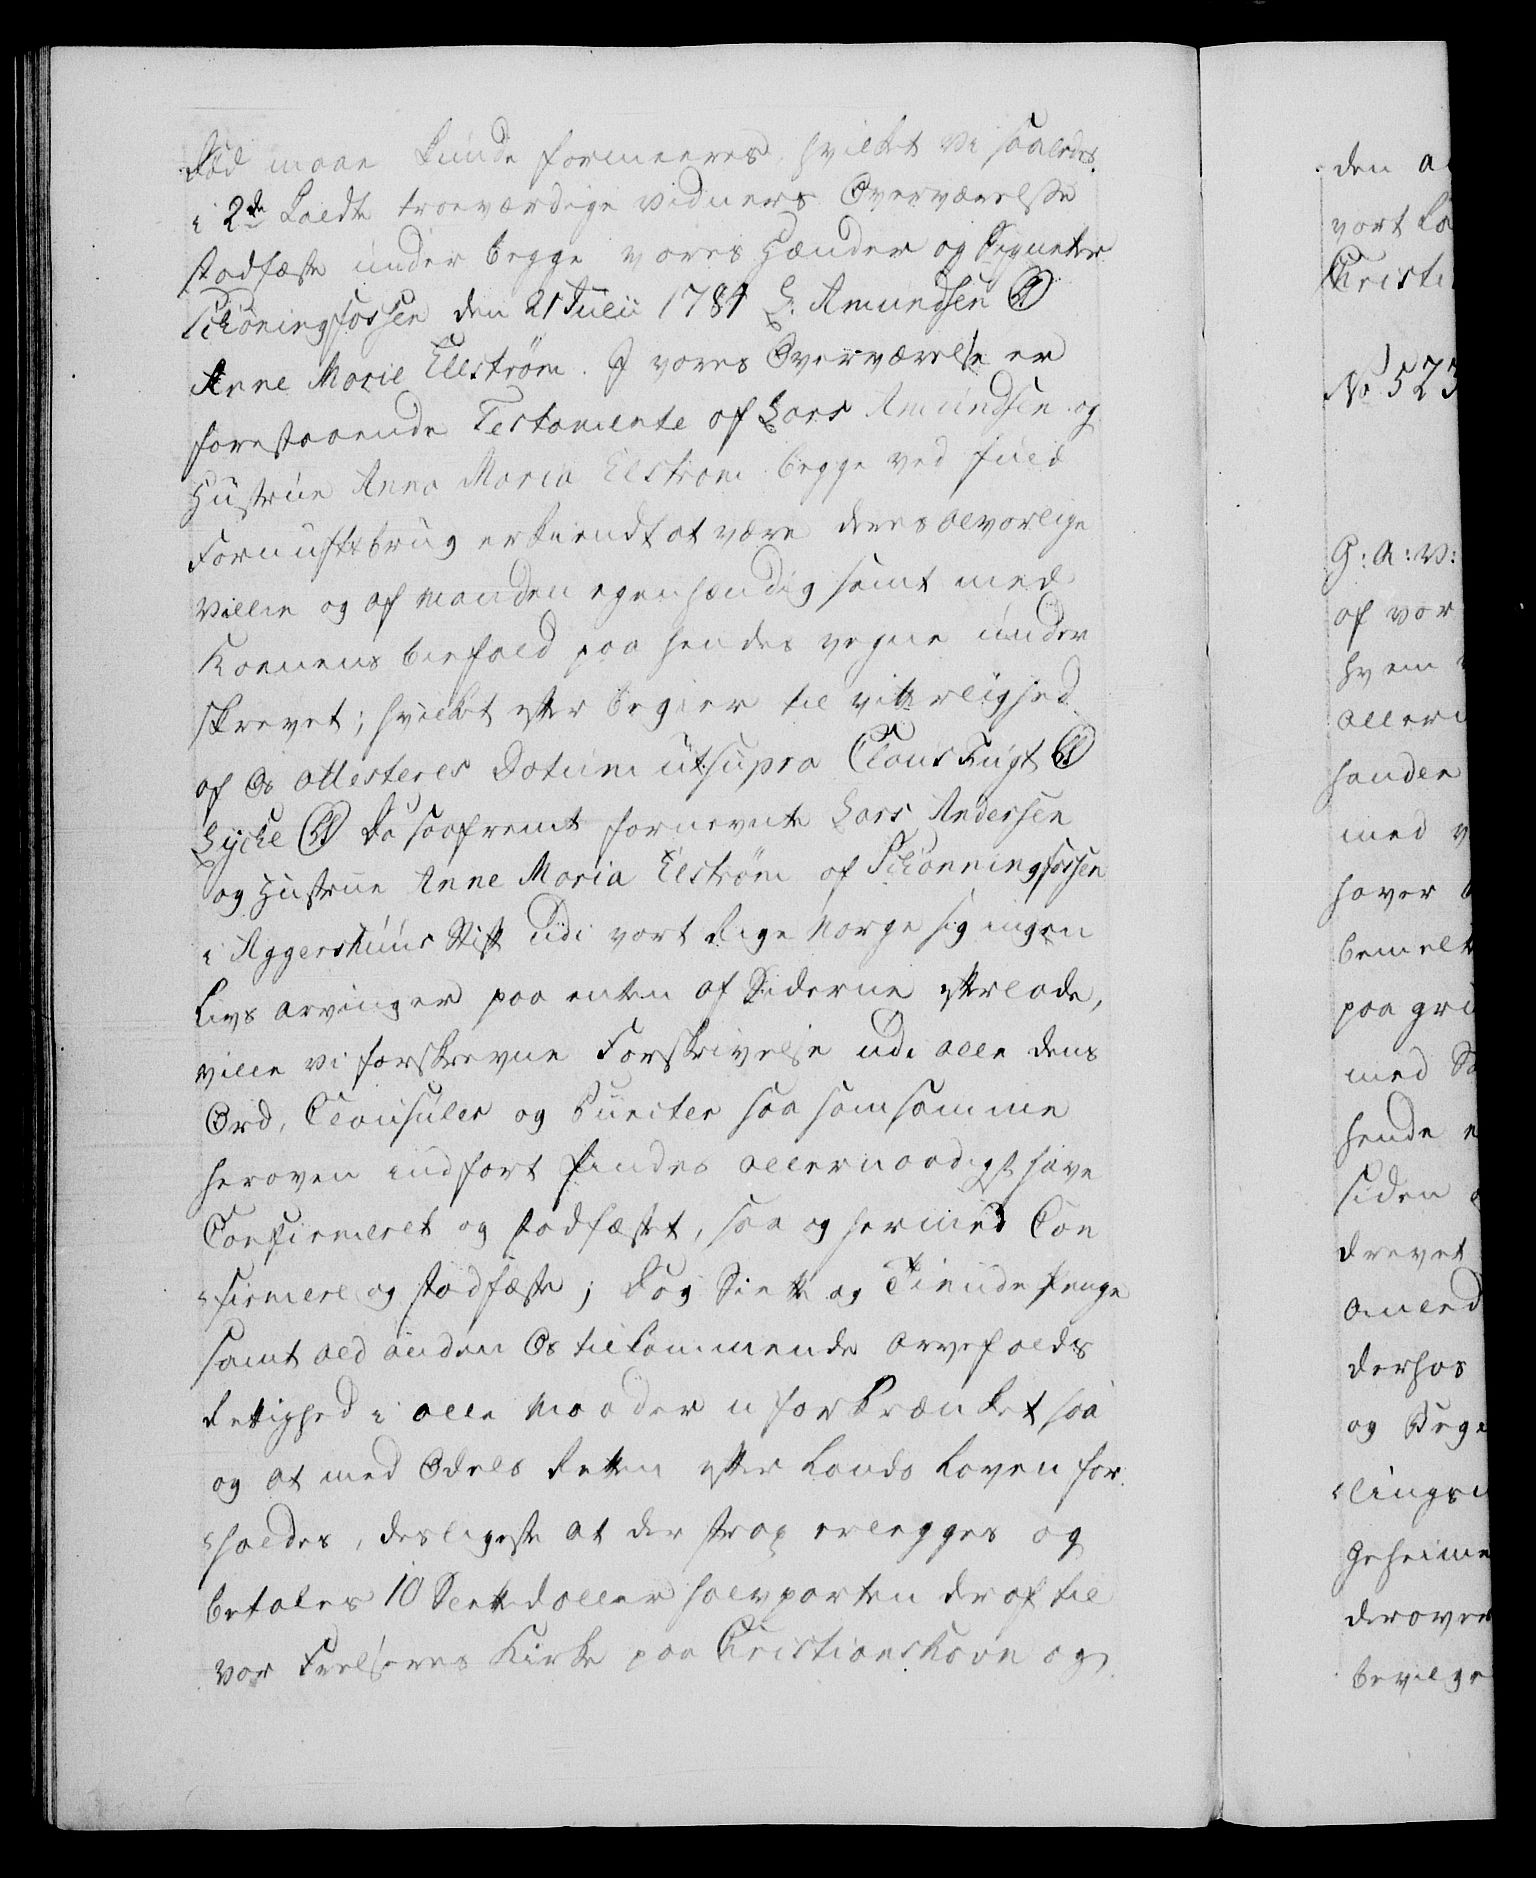 Død maae kunde formeenes, hvilket vi saaledes
i 2de Kaldte troeværdige Vidners Overværelse
stadfæste under begge vores Hænder og Signeter
Schøningfossen den 21 Julii 1784 L. Amundsen (LS)
Anne Marie Ellstrøm. I vores Overværelse er
forestaaende Testamente af Lars Amundsen og
Hustrue Anna Maria Elstrøm begge ved fuld
Fornuftsbrug erkiendt at være deres alvorlige
Villie og af Manden egenhændig samt med
Konens biefald paa hendes vegne under
skrevet; hvilket efter begier til vitterlighed
af Os attesteres Datum utsupra Claus Fugt (LS)
Lycke (LS) Da saafremt fornevnte Lars Andersen
og Hustrue Anne Maria Elstrøm af Schønningfossen
i Aggershuus Stift udi vort Rige Norge sig ingen
Livs arvinger paa enten af Siderne efterlade,
ville vi forskrevne Forskrivelse udi alle dens
Ord, Clausuler og Puncter saa som samme
heroven indført findes allernaadigst have
Confirmeret og stadfæstet, saa og hermed Con
firmere og stadfæste; Dog Siette og Tiende Penge
samt ald anden Os tilkommende arvefalds
Rettighed i alle Maader uforkrænket saa
og at med Odels Retten efter Lands Loven for
holdes, desligeste at der strax erlegges og
betales 10 Slettedaller halvparten deraf til
vor Frelseres Kirke paa Christianshavn og
den a
vort Ca
Christi
No 523
G: A: V:
af vor
hvem
allern
handen
med v
haver
bemelt
paa gru
med Sa
hende e
Siden
drevet
anled
derhos
og Bege
lings
Geheime
derover
bevilge